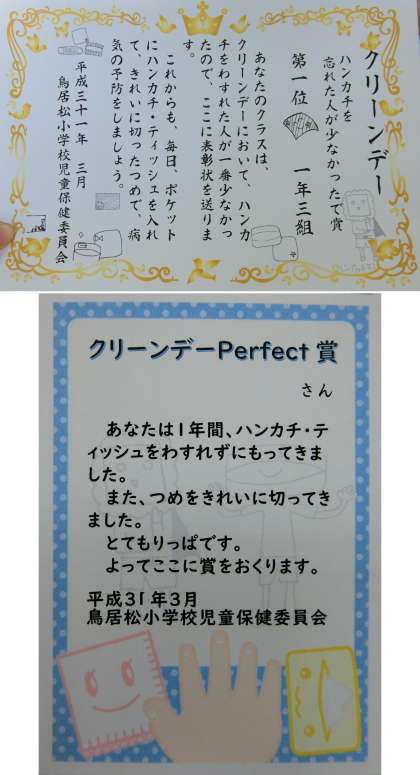 クリーンデー
ハンカチを
忘れた人が少なかったで賞
第一位　一年三組
あなたのクラスは、
クリーンデーにおいて、ハンカ
チをわすれた人が一番少なかっ
たので、ここに表彰状を送りま
す。
これからも、毎日、ポケット
にハンカチ・ティッシュを入れ
て、きれいに切ったつめで、病
気の予防をしましょう。
平成三十一年　三月
鳥居松小学校児童保健委員会
クリーンデーPerfect賞
さん
あなたは1年間、ハンカチ・テ
ィッシュをわすれずにもってきま
した。
また、つめをきれいに切ってき
ました。
とてもりっぱです。
よってここに賞をおくります。
平成31年3月
鳥居松小学校児童保健委員会